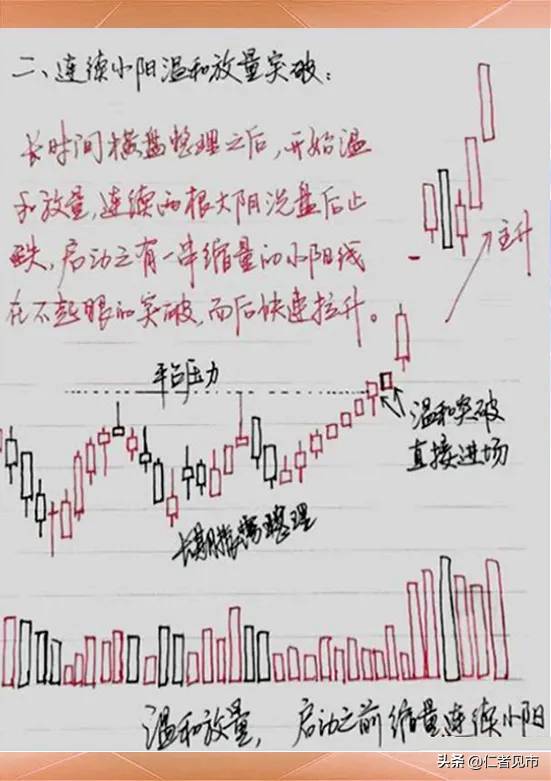 二、连续小阳温和放量突破：
长时间横盘整理之后，开始温
和放量，连续两根大阴洗盘后止
跌，启动之有一串缩量的小阳线
在不起眼的突破，而后快速拉升。
主升
平台压力
温和突破
直接进场
长期横盘整理
温和放量， 启动之前缩量连续小阳
头条 @仁者见市